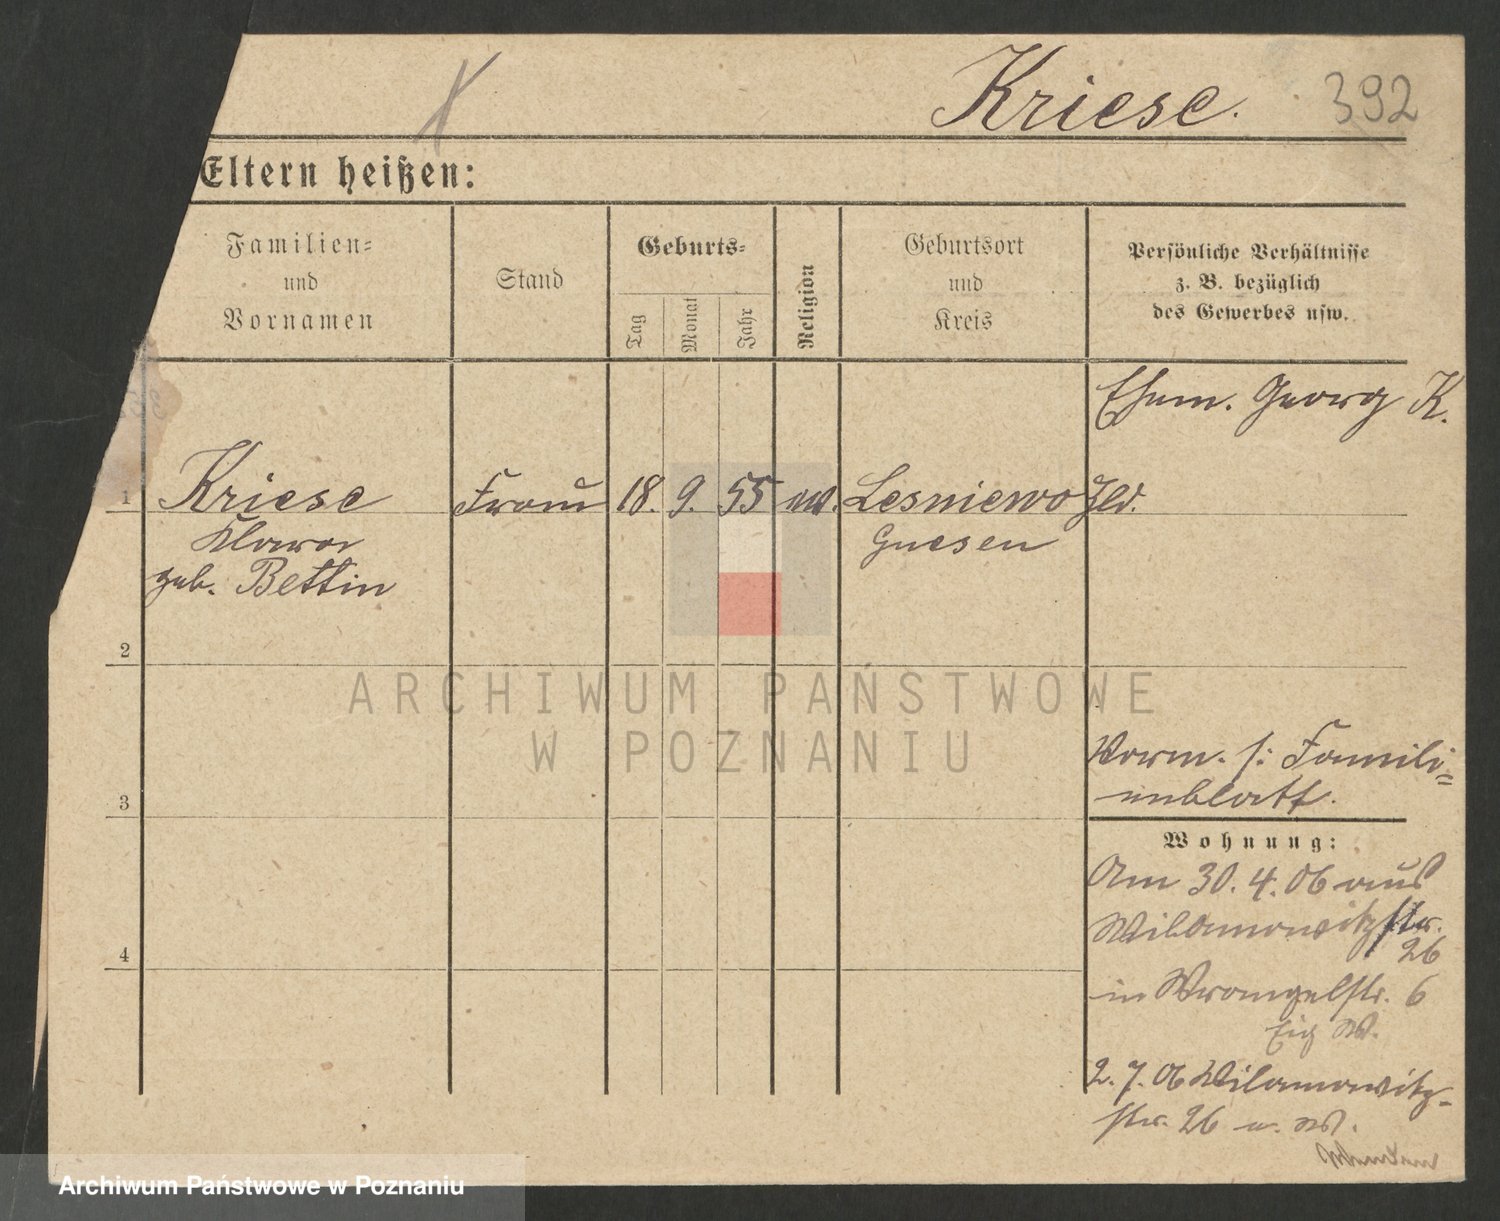 Kriese. 392
Eltern heißen:
Familien=
und
Vornamen
Stand
Geburts=
Tag
Monat
Jahr
Religion
Geburtsort
und
Kreis
Persönliche Verhältnisse
z. B. bezüglich
des Gewerbes usw.
Ehem. Georg K.
1 Kriese Frau 18. 9. 55 ev. Lesniewo Jld.
Klara Gnesen
geb. Bettin
2
Vorm. s: Famili=
enblatt.
3
Wohnung:
Am 30. 4. 06 aus
Wilamowitzstr.
26
4
in Wrangelstr. 6
Eig W.
2. 7. 06 Wilamowitz-
str. 26 e. W.
ARCHIWUM PAŃSTWOWE
W POZNANIU
Archiwum Państwowe w Poznaniu